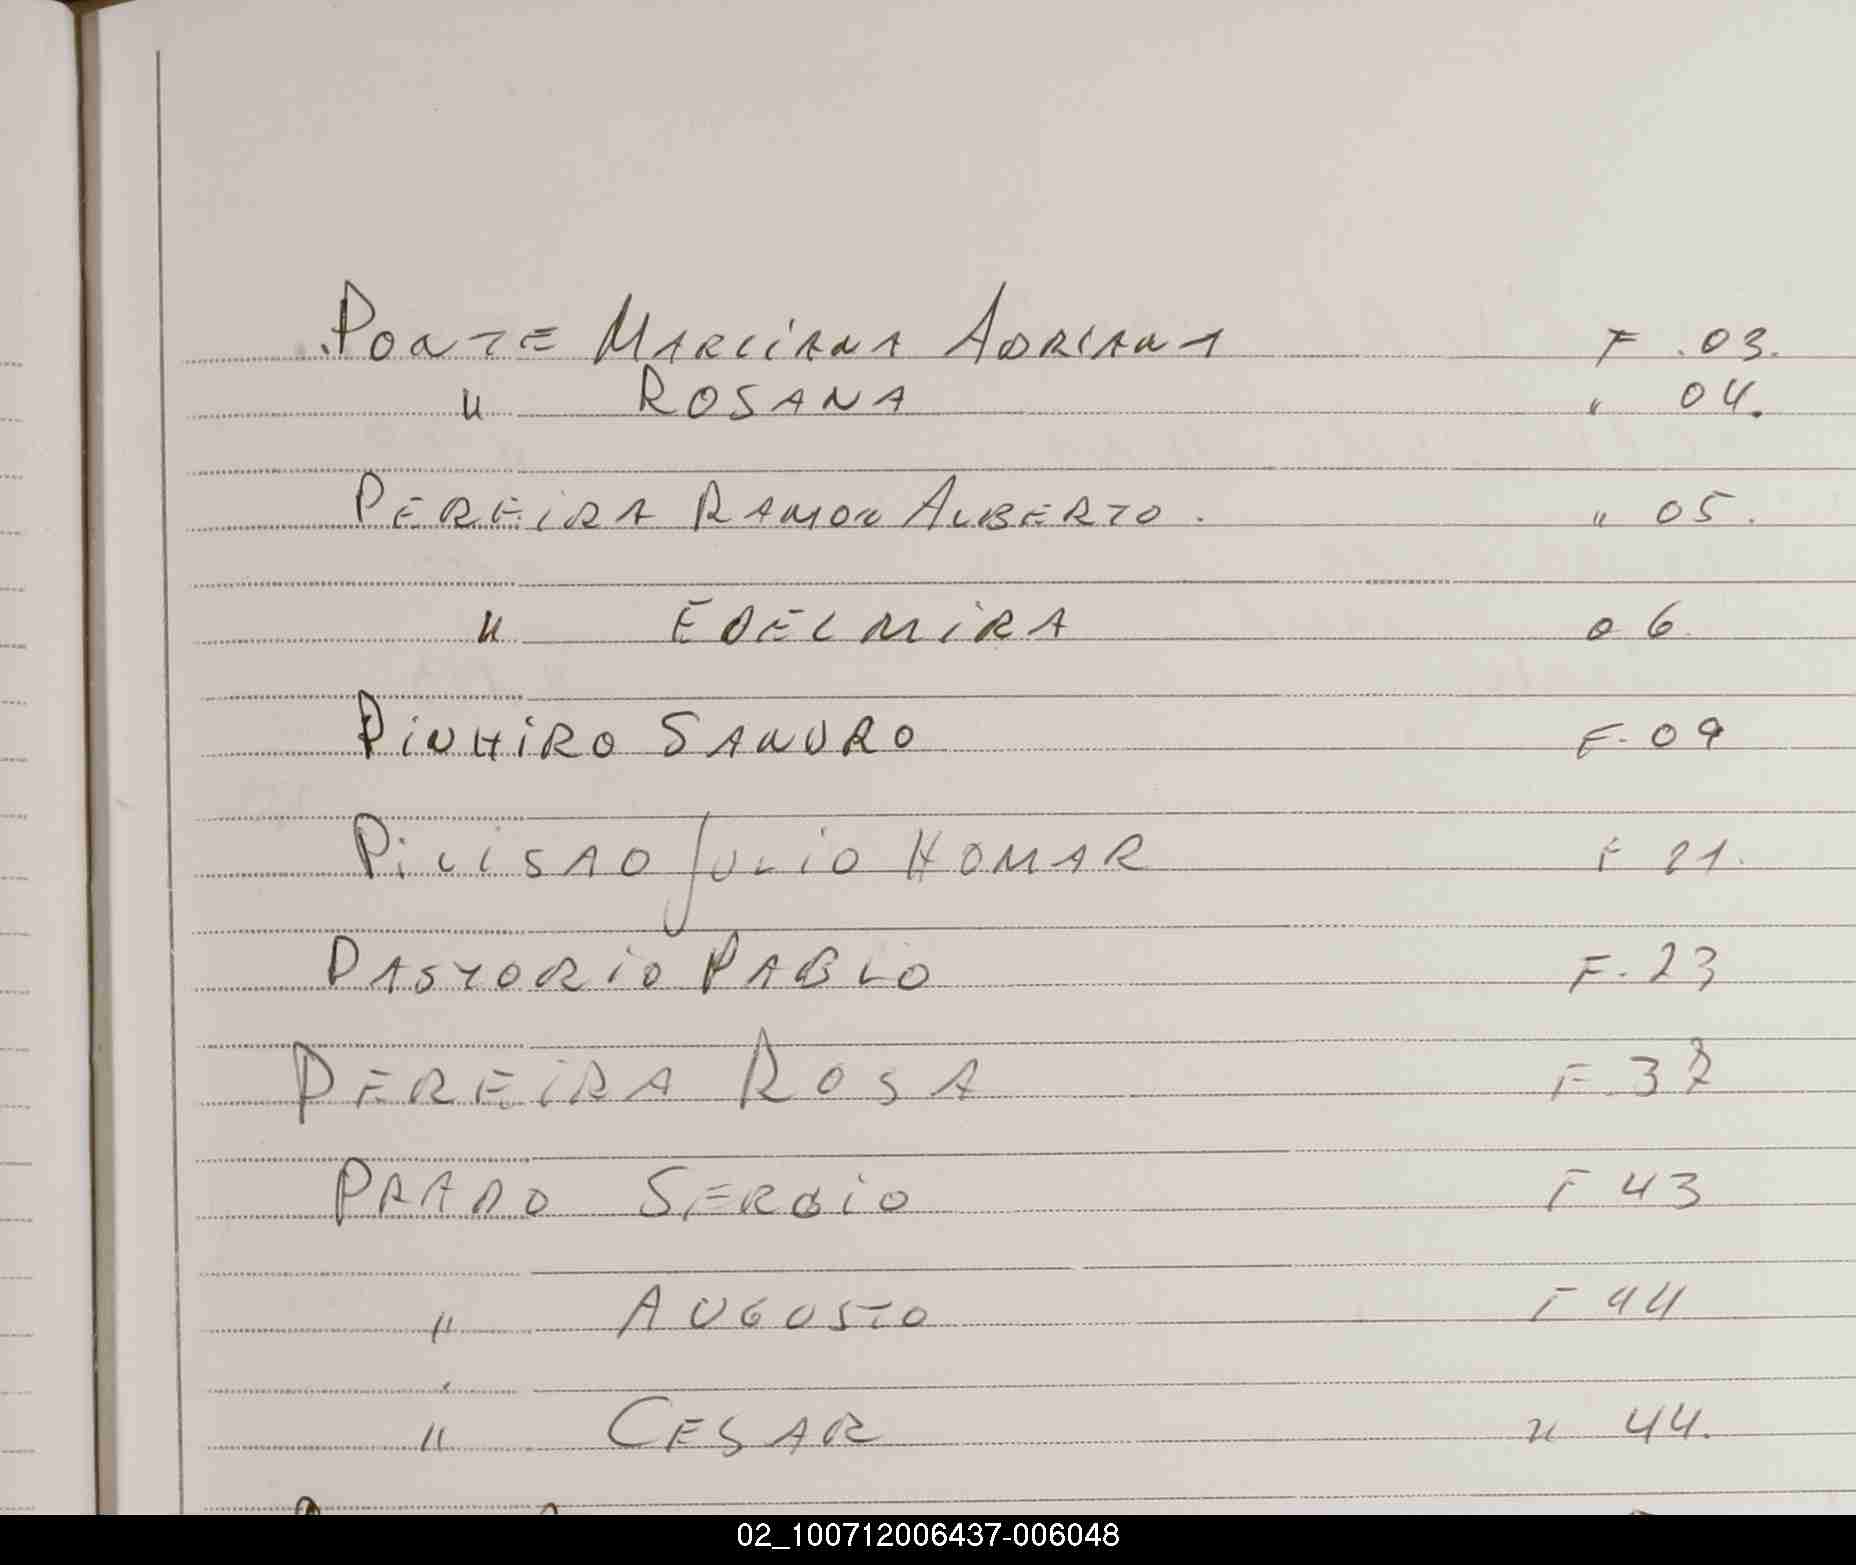 PONTE MARCIANA ADRIANA F .03.
" ROSANA " 04.
PEREIRA RAMON ALBERTO. " 05.
" EDELMIRA 06.
PINHIRO SANDRO F. 09
JULIO HOMAR F 21.
PASTORIO PABLO F. 23
PEREIRA ROSA F
PRADO SERGIO F 43
" AUGOSTO F 44
" CESAR " 44.
02_100712006437-006048